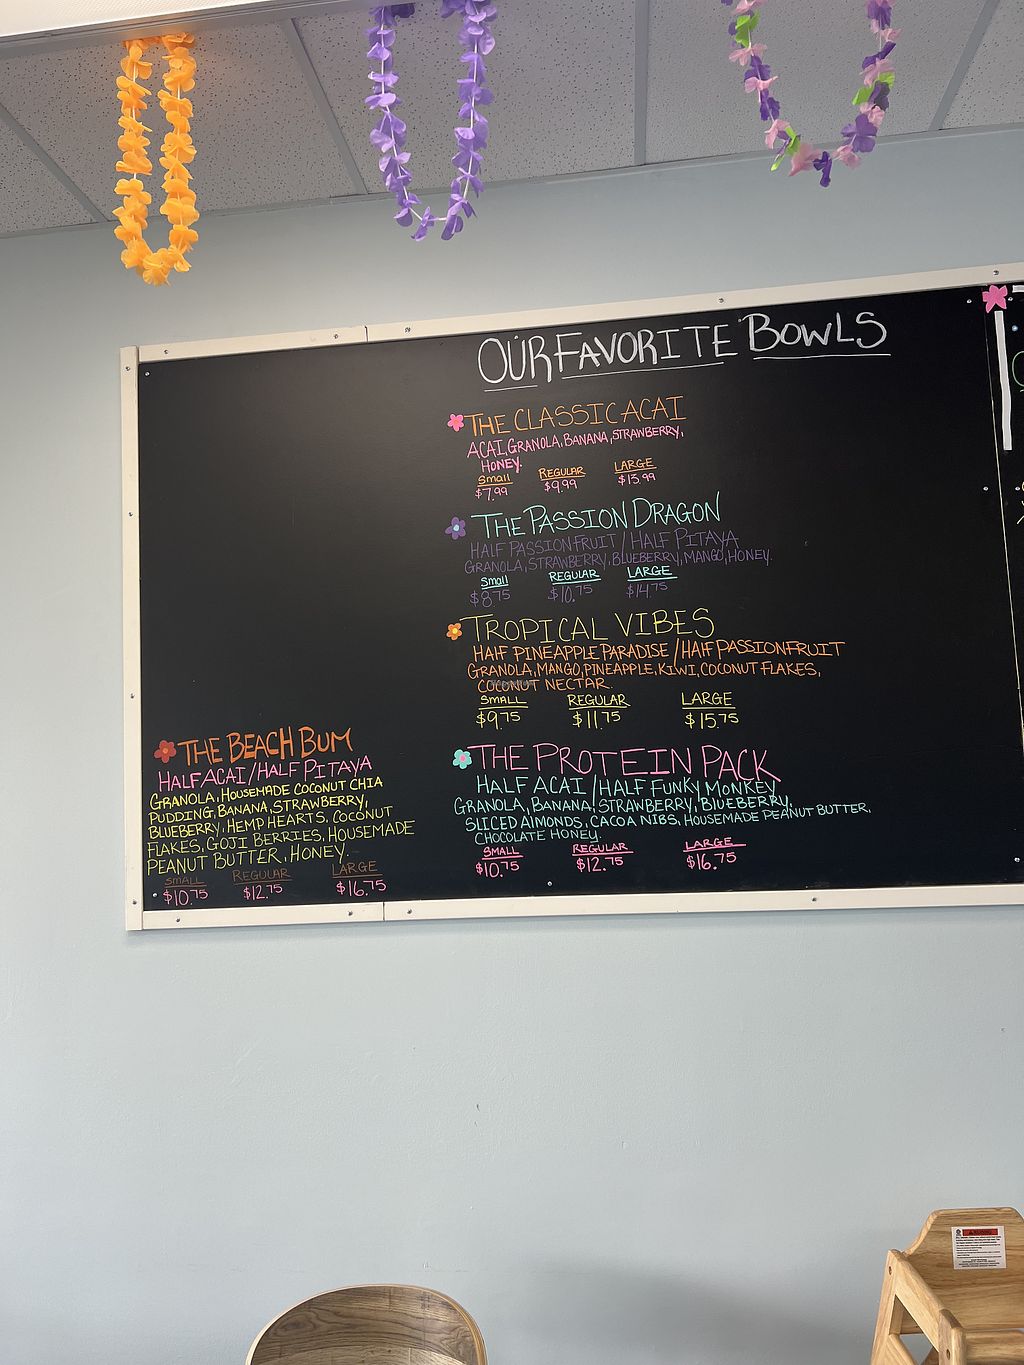 OUR FAVORITE BOWLS
THE CLASSIC ACAI
ACAI, GRANOLA, BANANA, STRAWBERRY,
HONEY.
Small REGULAR LARGE
$7.99 $9.99 $13.99
THE PASSION DRAGON
HALF PASSIONFRUIT / HALF PITAYA
GRANOLA, STRAWBERRY, BLUEBERRY, MANGO, HONEY.
Small REGULAR LARGE
$8.75 $10.75 $14.75
TROPICAL VIBES
HALF PINEAPPLE PARADISE / HALF PASSIONFRUIT
GRANOLA, MANGO, PINEAPPLE, KIWI, COCONUT FLAKES,
COCONUT NECTAR.
SMALL REGULAR LARGE
$9.75 $11.75 $15.75
THE PROTEIN PACK
HALF ACAI / HALF FUNKY MONKEY
GRANOLA, BANANA, STRAWBERRY, BLUEBERRY,
SLICED ALMONDS, CACOA NIBS, HOUSEMADE PEANUT BUTTER,
CHOCOLATE HONEY.
SMALL REGULAR LARGE
$10.75 $12.75 $16.75
THE BEACH BUM
HALF ACAI / HALF PITAYA
GRANOLA, HOUSEMADE COCONUT CHIA
PUDDING, BANANA, STRAWBERRY,
BLUEBERRY, HEMP HEARTS, COCONUT
FLAKES, GOJI BERRIES, HOUSEMADE
PEANUT BUTTER, HONEY.
SMALL REGULAR LARGE
$10.75 $12.75 $16.75